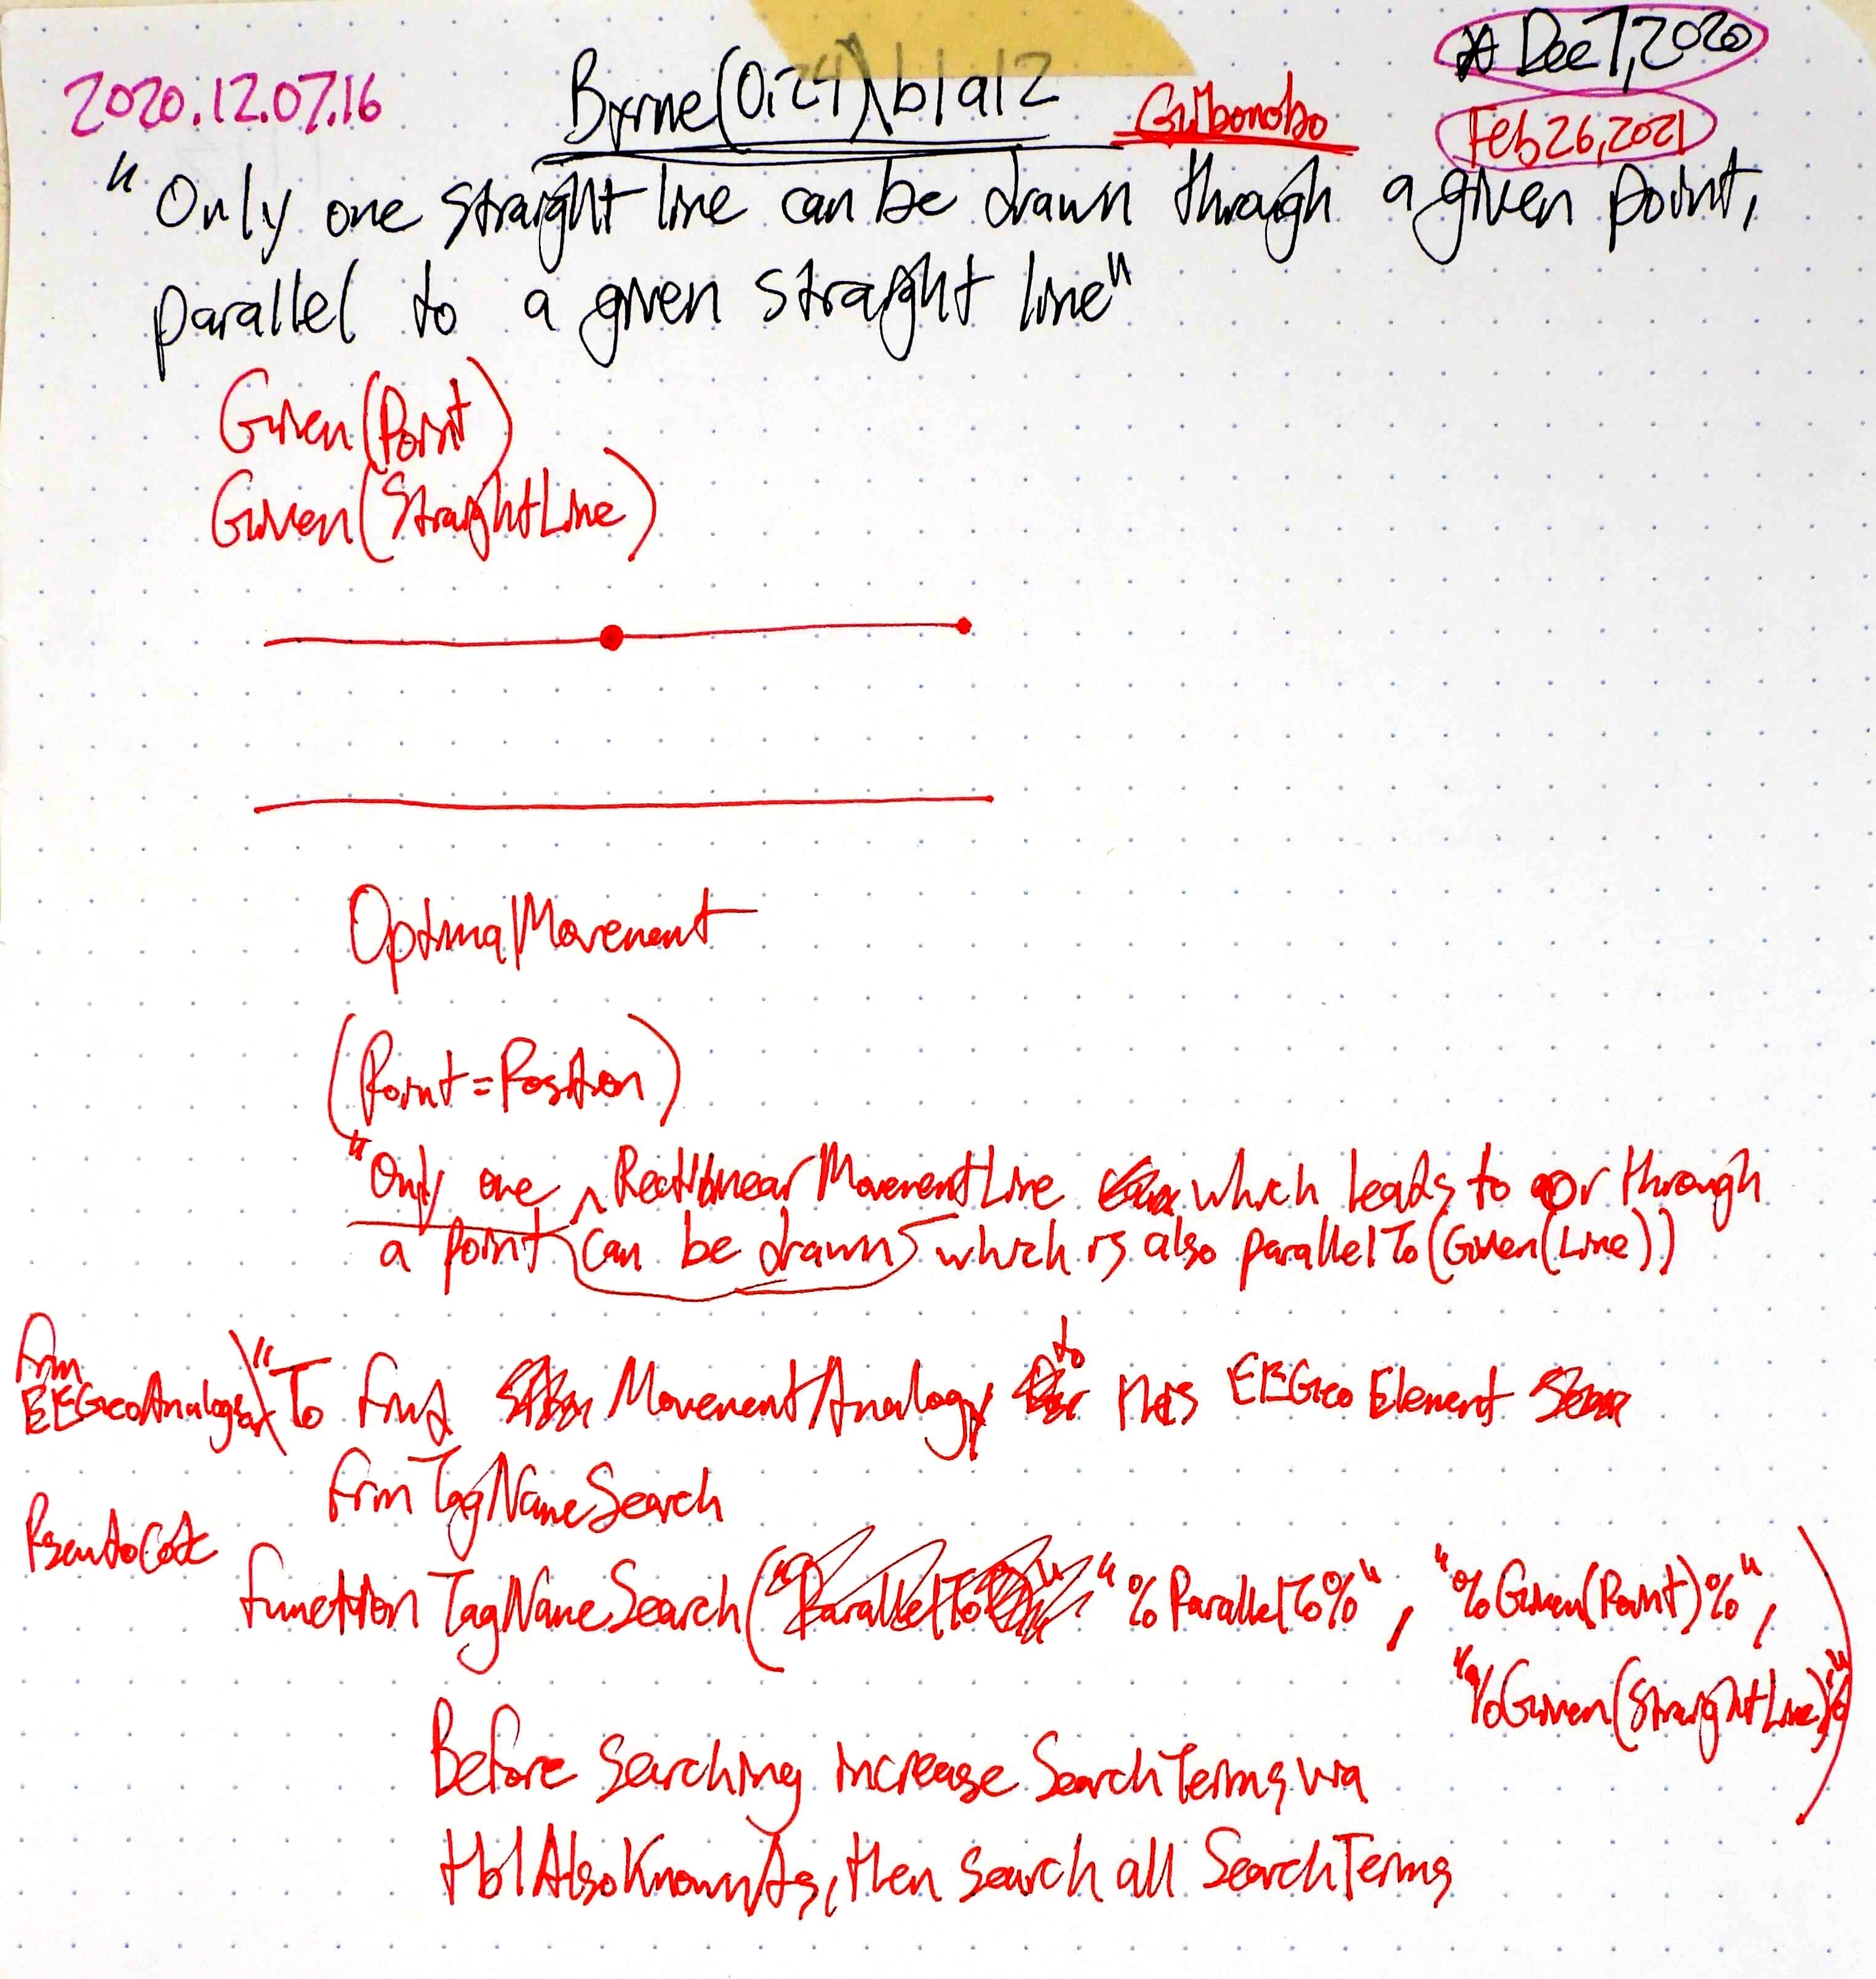 2020.12.07.16
Byrne(0i24)\b1a12
Gitbonobo
Dec 7, 2020
Feb 26, 2021
"Only one straight line can be drawn through a given point,
parallel to a given straight line"
Given(Point)
Given(StraightLine)
OptimalMovement
(Point=Position)
"Only one ^ RectilinearMovementLine which leads to or through
a point can be drawn which is also parallelTo(Given(Line))
frm
EEGeoAnalogy
"To find MovementAnalogy to this EEGeoElement
frmTagNameSearch
PseudoCode
function TagNameSearch("ParallelTo "%ParallelTo%", "%Given(Point)%",
"%Given(StraightLine)%")
Before searching increase SearchTerms via
tblAlsoKnownAs, then search all SearchTerms